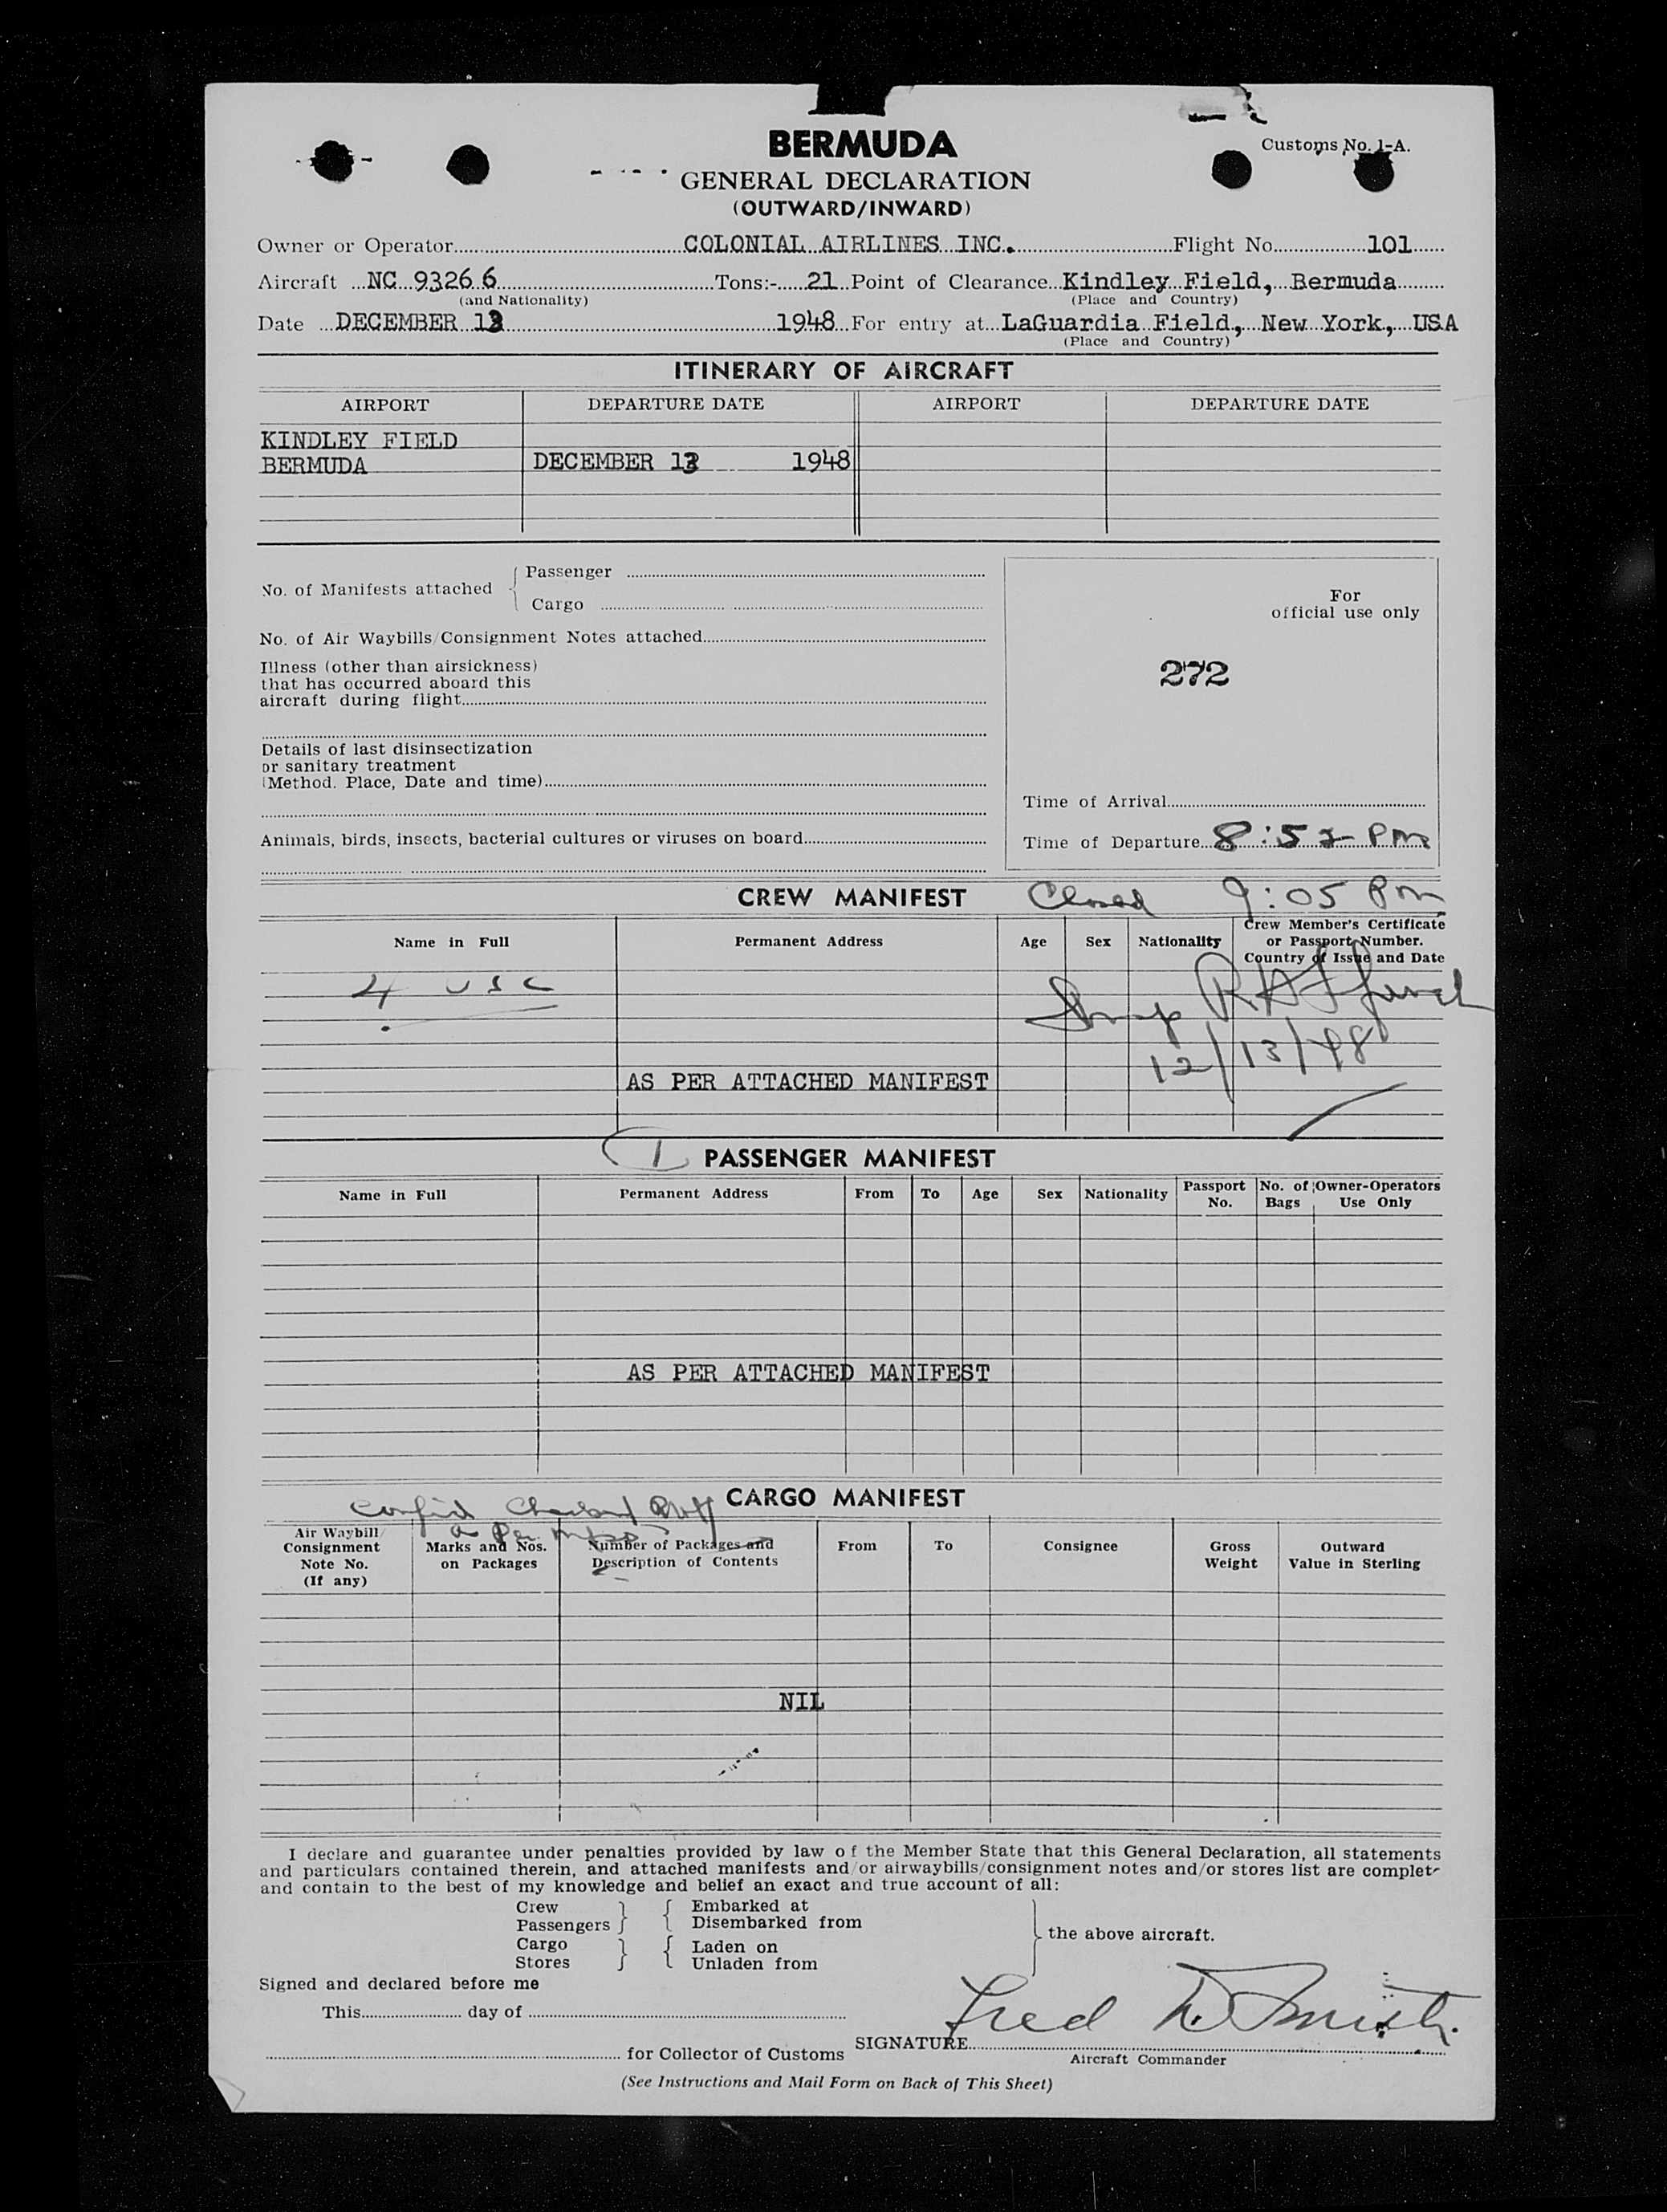 BERMUDA
Customs No. 1-A.
GENERAL DECLARATION
(OUTWARD/INWARD)
Owner or Operator COLONIAL AIRLINES INC. Flight No. 101
Aircraft NC 93266 Tons:- 21 Point of Clearance Kindley Field, Bermuda
(and Nationality) (Place and Country)
Date DECEMBER 13 1948 For entry at LaGuardia Field, New York, USA
(Place and Country)
ITINERARY OF AIRCRAFT
AIRPORT DEPARTURE DATE AIRPORT DEPARTURE DATE
KINDLEY FIELD
BERMUDA DECEMBER 13 1948
No. of Manifests attached Passenger
Cargo
For
official use only
No. of Air Waybills/Consignment Notes attached
Illness (other than airsickness)
that has occurred aboard this
aircraft during flight
272
Details of last disinsectization
or sanitary treatment
(Method. Place, Date and time)
Time of Arrival
Animals, birds, insects, bacterial cultures or viruses on board
Time of Departure 8:52 PM
CREW MANIFEST Closed 9:05 Pm
Name in Full Permanent Address Age Sex Nationality Crew Member's Certificate
or Passport Number.
Country of Issue and Date
4 USC
12/13/48
AS PER ATTACHED MANIFEST
1 PASSENGER MANIFEST
Name in Full Permanent Address From To Age Sex Nationality Passport No. No. of Bags Owner-Operators Use Only
AS PER ATTACHED MANIFEST
CARGO MANIFEST
Air Waybill/
Consignment
Note No.
(If any)
Marks and Nos.
on Packages
Number of Packages and
Description of Contents
From To Consignee Gross Weight Outward Value in Sterling
NIL
I declare and guarantee under penalties provided by law of the Member State that this General Declaration, all statements
and particulars contained therein, and attached manifests and/or airwaybills/consignment notes and/or stores list are complete
and contain to the best of my knowledge and belief an exact and true account of all:
Crew Embarked at
Passengers Disembarked from
the above aircraft.
Cargo Laden on
Stores Unladen from
Signed and declared before me
This day of
Fred Smith
SIGNATURE
for Collector of Customs
Aircraft Commander
(See Instructions and Mail Form on Back of This Sheet)